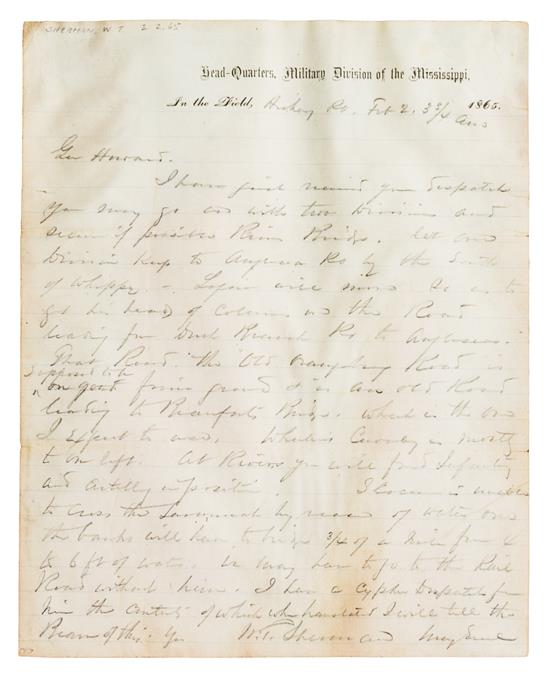 SHERMAN, W. T. 2 2.65
Head-Quarters, Military Division of the Mississippi,
In the Field, Hickory Feb 2, 3 3/4 1865.
Gen Howard.
I have just received your dispatch
You may go on with two Divisions and
secure if possible Rivers Bridge. let one
Division keep to Angesea by the South
of Whippy. - Logan will move so as to
get his head of column on the Road
leading from Duck Branch Po to Angleseas.
That Road, "the Old Orangeburg Road is
supposed to be
on good firm ground & is an old Road
leading to Beauforts Bridge. which is the one
I expect to use. Wheelers Cavalry is mostly
to our left. At Rivers you will find Infantry
and artillery in position. Slocum is unable
to cross the Savannah by reason of water over
the banks will have to bridge 3/4 of a mile from 4
to 6 ft of water. we may have to go to the Rail
Road without him. I have a cypher Dispatch from
him the contents of which when translated I will tell the
Bearer of this. Yrs W. T. Sherman Maj Genl